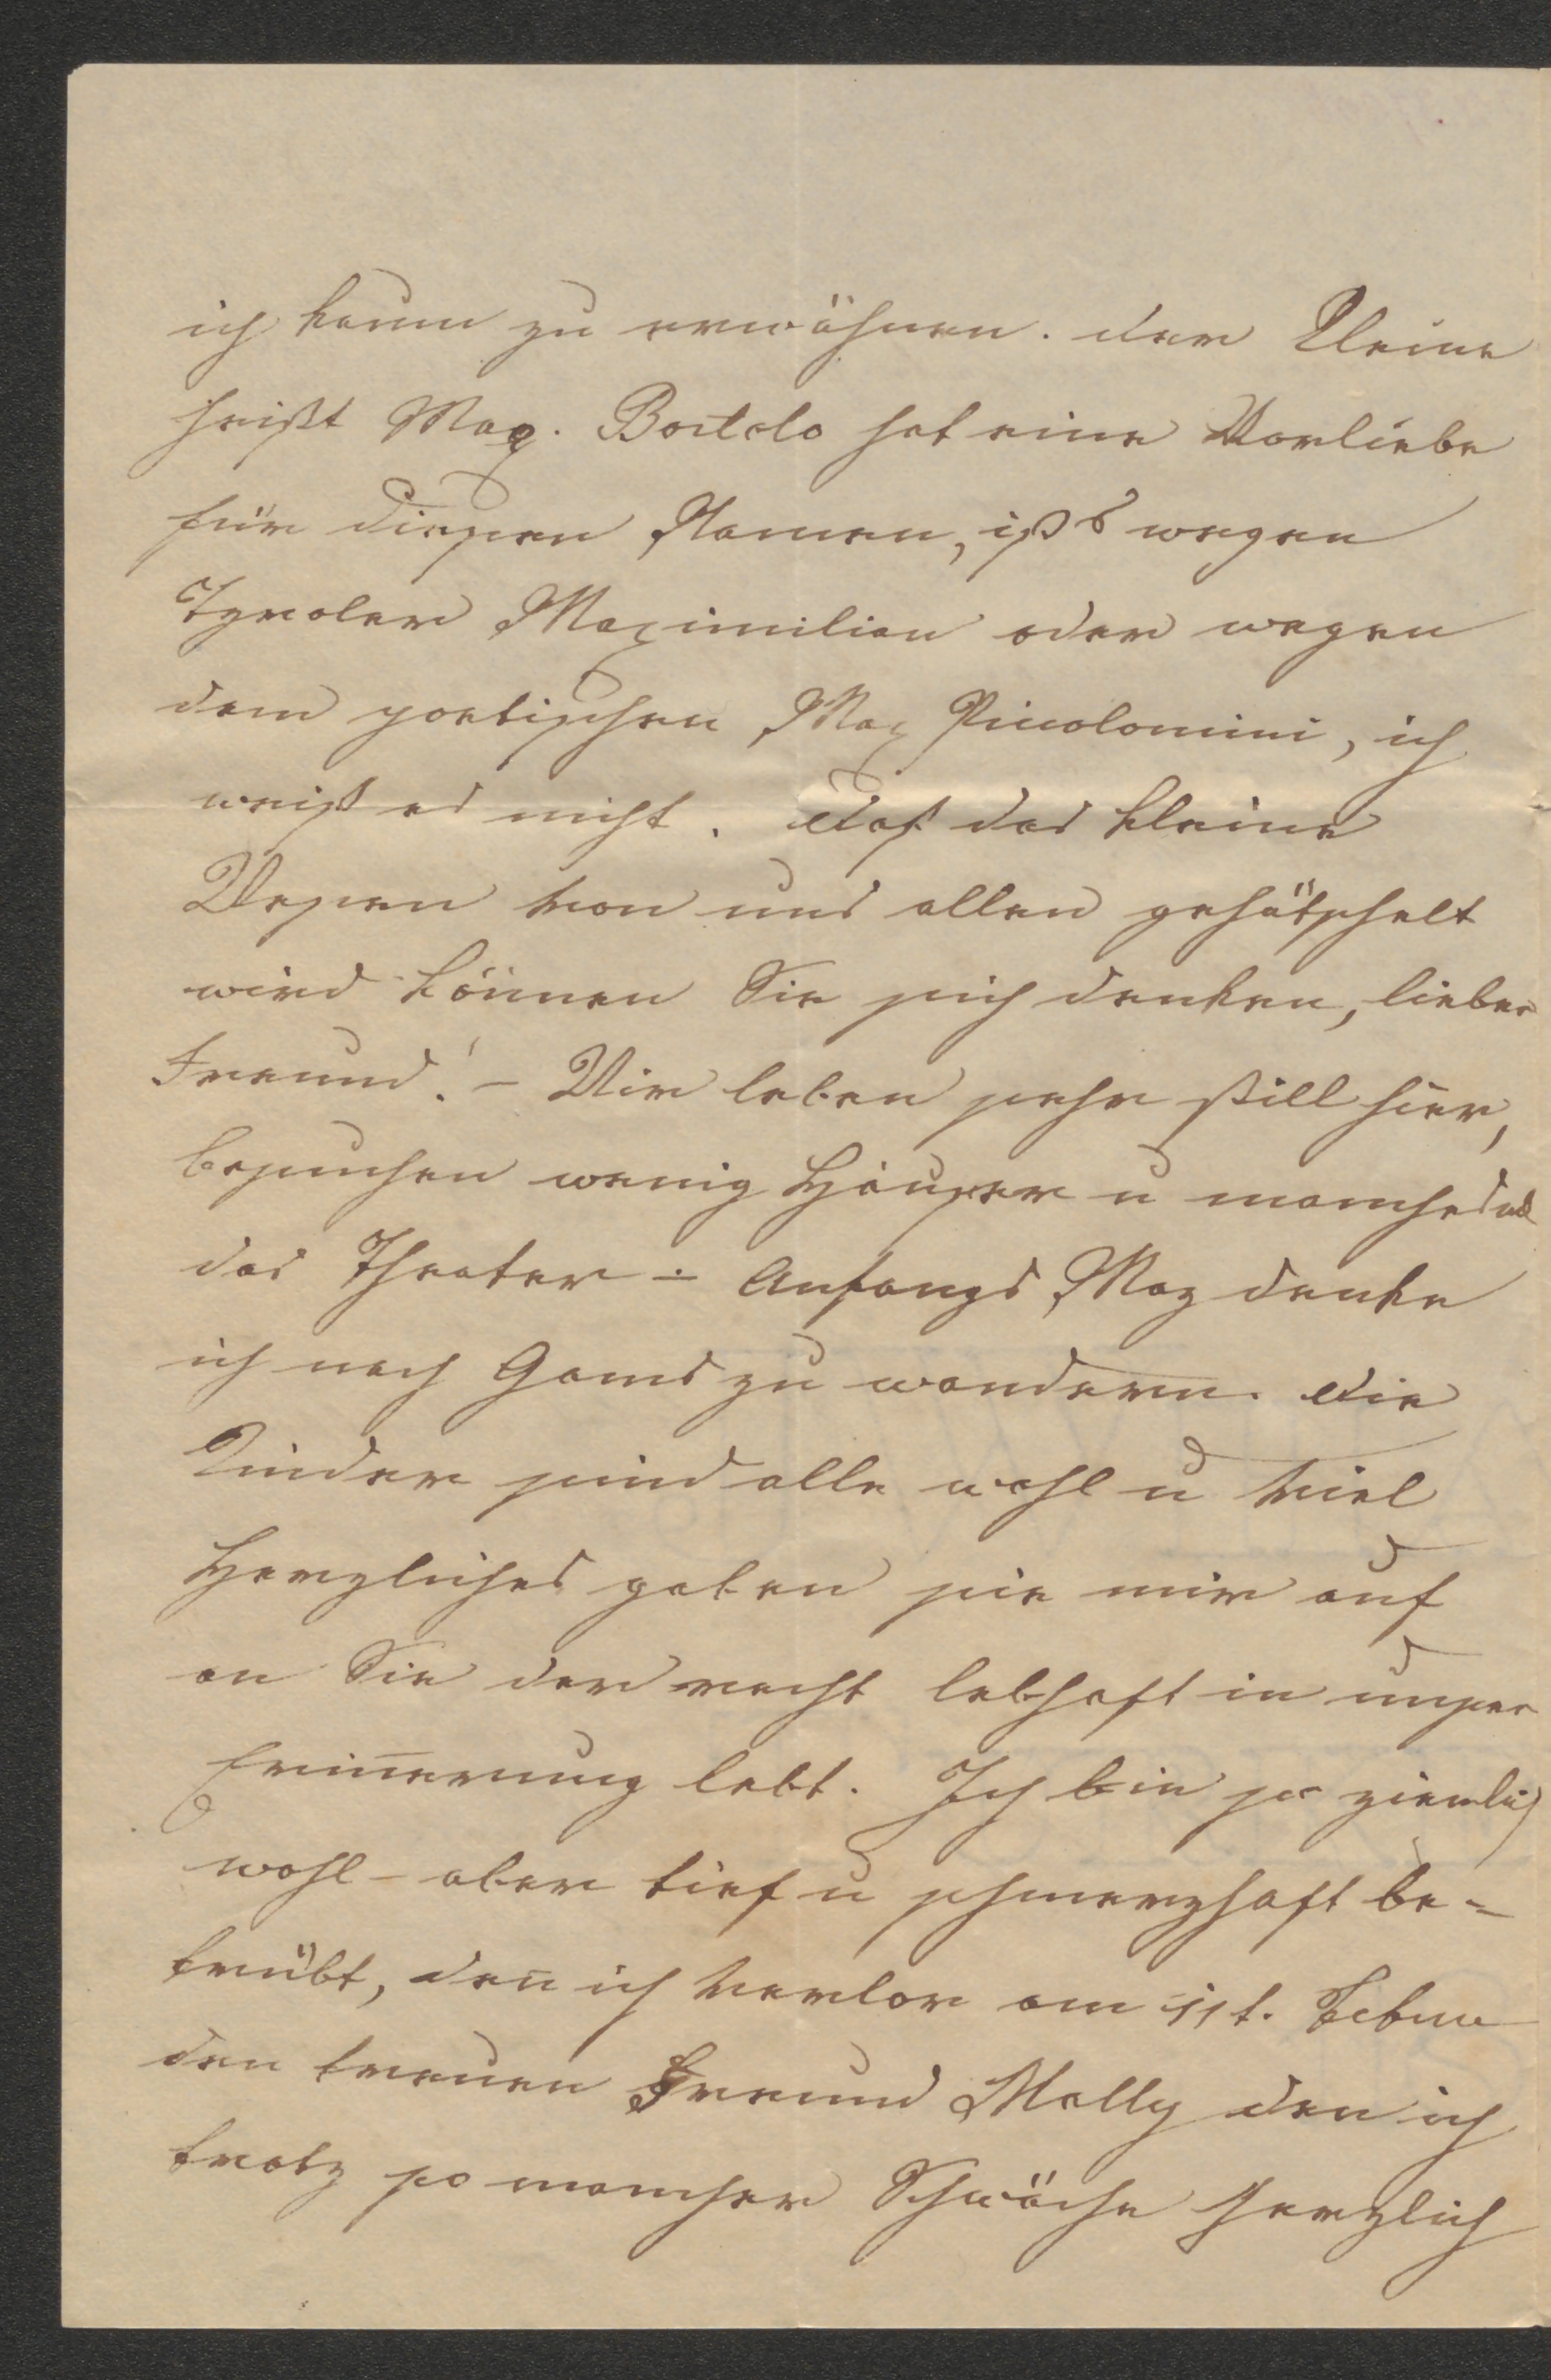 ich kaum zu erwähnen. der Kleine
heißt Max. Bortolo hat eine Vorliebe
für diesen Namen, ists wegen
Tyroler Maximilian oder wegen
dem poetischen Max Piccolomini, ich
weiß es nicht. Daß das kleine
Wesen von uns allen gehätschelt
wird können Sie sich denken, lieber
Freund! – Wir leben sehr still hier,
besuchen wenig Häuser u manches
das Theater – Anfangs May denke
ich nach Gams zu wandern. Die
Kinder sind alle wohl u viel
Herzliches geben sie mir auf
an Sie der recht lebhaft in unser
Erin̄erung lebt. Ich bin so ziemlich
wohl – aber tief u schmerzhaft be=
trübt, den̄ ich verlor am 11t. Febru
den treuen Freund Molly den ich
trotz so mancher Schwäche herzlich